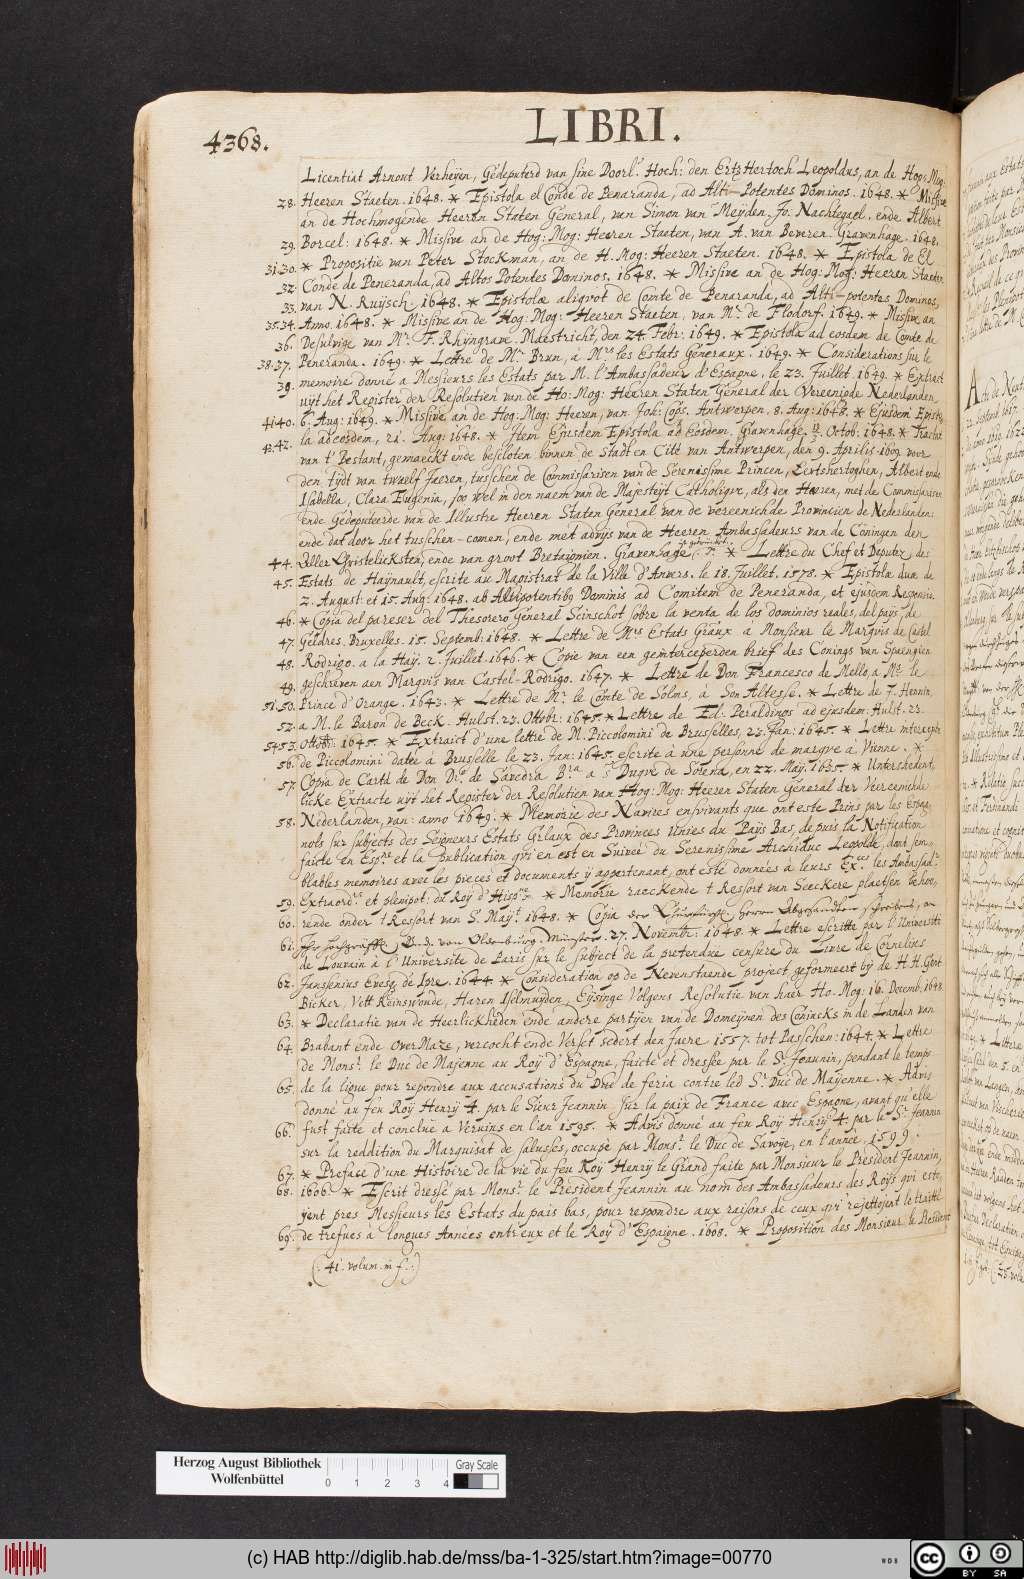 LIBRI.
4368.
Licentiat Arnout Verheÿen, Gedeputerd van sine Doorl.ᵗ Hoch: den Ertz Hertoch Leopoldus, an de Hog: Mog:
28. Heeren Staeten. 1648. * Epistola el Conde de Penaranda, ad Alti-Potentes Dominos. 1648. * Missive
an de Hochmogende Heeren Staten General, van Simon van Meÿden, Jo. Nachtegael, ende Albert
29. Borcel: 1648. * Missive an de Hog: Mog: Heeren Staeten, van A. van Beveren. Gravenhage. 1648.
31.30. * Propositie van Peter Stockman, an de H. Mog: Heeren Staeten. 1648. * Epistola de El
32. Conde de Peneranda, ad Altos Potentes Dominos. 1648. * Missive an de Hog: Mog: Heeren Staeten
33. van N. Ruÿsch. 1648. * Epistolæ aliqvot de Comte de Penaranda, ad Alti-potentes Dominos,
35.34. Anno. 1648. * Missive an de Hog: Mog: Heeren Staeten, van Mʳ. de Flodorf. 1649. * Missive an
36. Desulvige van Mʳ. F. Rhÿngrave. Maestricht, den 24. Febr: 1649. * Epistola ad eosdem de Comte de
38.37. Peneranda. 1649. * Lettre de Mʳ. Brun, a Mʳˢ les Estats Generaux. 1649. * Considerations sur le
39. memoire donné a Messieurs les Estats par M. l'Ambassadeur d'Espagne, le 23. Juillet 1649. * Extract
uÿt het Register der Resolutien van de Ho: Mog: Heeren Staten General der Vereenigde Nederlanden,
41.40. 6. Aug: 1649. * Missive an de Hog: Mog: Heeren, van Joh: Cops. Antwerpen, 8. Aug: 1648. * Ejusdem Episto-
43.42. la ad eosdem, 21. Aug: 1648. * Item Ejusdem Epistola ad Eosdem. Gravenhage. Octob: 1648. * Tractat
van t' Bestant, gemaeckt ende besloten binnen de Stadt en Cité van Antwerpen, den 9. Aprilis. 1609. voor
den tijdt van twaelf Jaeren, tusschen de Commissarisen van de Serenissime Princen, Eertshertoghen, Albert ende
Isabella, Clara Eugenia, soo wel in den naem van de Majesteÿt Catholiqve, als den Heeren, met de Commissarisen
ende Gedeputeerde van de Illustre Heeren Staten General van de vereenichde Provincien de Nederlanden:
ende dat door het tusschen-comen, ende met advÿs van de Heeren Ambassadeurs van de Coningen den
44. Aller Christelicksten, ende van groot Bretaignien. Gravenhage * Lettre du Chef et Deputez, des
45. Estats de Haÿnault, escrite au Magistrat de la Ville d'Anvers. le 18. Juillet. 1578. * Epistolæ duæ de
2. August: et 15. Aug: 1648. ab Altipotentibꝰ Dominis ad Comitem de Peneranda, et ejusdem Responsio.
46. * Copia del pareser del Thesorero General Scinschot sobre la venta de los dominios reales, del paÿs, de
47. Geldres. Bruxelles. 15. Septemb: 1648. * Lettre de Mʳˢ Estats Gñaux a Monsieur le Marqvis de Castel
48. Rodrigo. a la Haÿ. 2. Juillet. 1646. * Copie van een geintercepeerden brief des Conings van Spaengien
49. geschreven aen Marqvis van Castel-Rodrigo. 1647. * Lettre de Don Francesco de Mello, a Mʳ. le
51.50. Prince d'Orange. 1643. * Lettre de Mʳ. le Comte de Solms, à Son Altesse. * Lettre de J. Hannin,
52. a M. le Baron de Beck. Hulst. 23. Ottobr: 1645. * Lettre de Ed: Peraldinos ad ejusdem. Hulst. 23.
54.53. Ottob: 1645. * Extraict d'une lettre de M. Piccolomini de Brusselles, 23. Jan: 1645. * Lettre interceptæ
56. de Piccolomini datée a Bruselle le 23. Jan: 1645. escrite à une personne de marqve à Vienne. *
57. Copia de Carta de Don D.º de Savedra a Duqve de Sorena, en 22. Maÿ. 1635. * Unterschedent-
licke Extracte uÿt het Register der Resolutien van Hog: Mog: Heeren Staten Général der Veireenichde
58. Nederlanden, van: anno 1649. * Memorie des Navires ensvivants que ont este Prins par les Espag-
nols sur subjects des Seigneurs Estats Gr̃laux des Provinces Unies du Paÿs Bas, depuis la Notification
faicte en Espⁿᵉ et la publication qvi en est en Suivée du Serenissime Archiduc Leopolde, dont sem-
blables memoires avec les pieces et documents ÿ appertenant, ont esté données a leurs Exᶜᵉˢ les Ambassadʳ
59. Extraordʳˢ et plenipot: du Roÿ d'Hispⁿᵉ. * Memorie raeckende t Ressort van Seeckere plaetsen behoo-
60. rende onder t Ressort van Sʳ Maÿᵗ 1648. * Copia der Churfürstl: Herrn Abgesandten schreibens, an
61. Ihr hochgräffl: Gn: von Oldenburg. Münster. 27. Novembr: 1648. * Lettre escritte par l'Université
de Louvain à l'Universite de Paris sur le subject de la pretendue censure du Livre de Cornelius
62. Janssenius Evesq; de Ipre. 1644. * Consideration op de Nevenstaende project geformeert bÿ de H.H. Gent
Bicker, Vett Reinswoude, Haren Islmuÿden, Eÿsinge Volgens Resolutie van haer Ho. Mog: 16. Decemb: 1648.
63. * Declaratie van de Heerlickheden ende andere partÿen van de Domeÿnen des Conincks in de Landen van
64. Brabant ende OverMaze, vercocht ende Verset sedert den Jaere 1557. tot Paschen: 1644. * Lettre
de Monsʳ. le Duc de Majenne au Roÿ d'Espagne, faicte et dressée par le Sʳ. Jeannin, pendant le temps
65. de la ligue pour repondre aux accusations du Duc de feria contre led Sʳ. Duc de Maÿenne. * Advis
donné au feu Roÿ Henrÿ 4. par le Sieur Jeannin sur la paix de France avec Espagne, avant qu'elle
66. fust faite et conclue a Vervins en l'an 1595. * Advis donné au feu Roÿ Henrÿ 4. par le Sʳ. Jeannin
sur la reddition du Marquisat de salusses, occupé par Monsʳ. le Duc de Savoÿe, en l'année. 1599.
67. * Preface d'une Histoire de la vie du feu Roÿ Henrÿ le Grand faite par Monsieur le President Jeannin,
68. 1606. * Escrit dressé par Monsʳ. le President Jeannin au nom des Ambassadeurs des Roÿs qvi este-
ÿent pres Messieurs les Estats du pais bas, pour respondre aux raisons de ceux qvi rejettojent le traitté
69. de trefues a longues Années entr'eux et le Roÿ d'Espaigne. 1608. * Proposition des Monsieur le President
(. 41. volum. in f. .)
Herzog August Bibliothek
Wolfenbüttel
0 1 2 3 4
Gray Scale
(c) HAB http://diglib.hab.de/mss/ba-1-325/start.htm?image=00770
WDB
cc BY SA